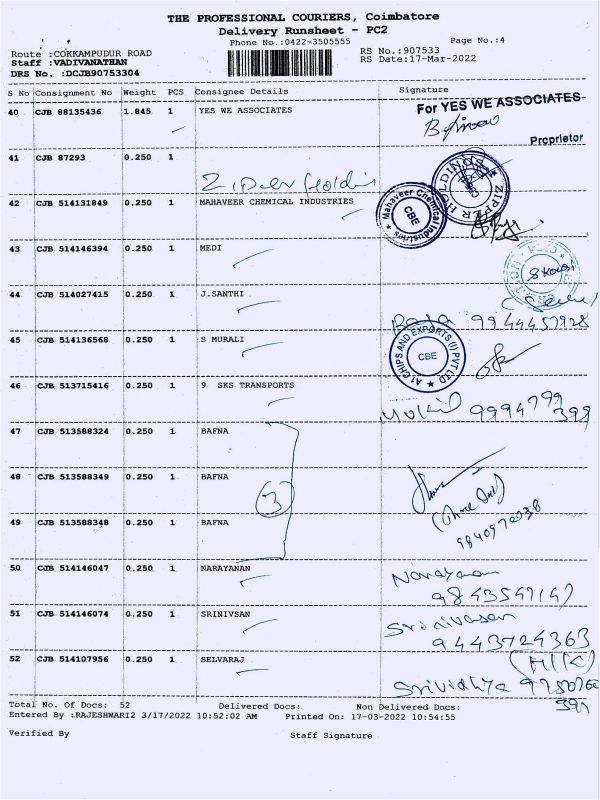 THE PROFESSIONAL COURIERS, Coimbatore
Delivery Runsheet - PC2
Phone No.:0422-3505555 Page No.:4
Route :COKKAMPUDUR ROAD RS No.:907533
Staff :VADIVANATHAN RS Date:17-Mar-2022
DRS No. :DCJB90753304
S No Consignment No Weight PCS Consignee Details Signature
40 CJB 88135436 1.845 1 YES WE ASSOCIATES For YES WE ASSOCIATES
Proprietor
41 CJB 87293 0.250 1
ZIPPER HOLDINGS
42 CJB 514131849 0.250 1 MAHAVEER CHEMICAL INDUSTRIES Mahaveer Chemical Industries CBE
43 CJB 514146394 0.250 1 MEDI
44 CJB 514027415 0.250 1 J.SANTHI
9944457928
45 CJB 514136568 0.250 1 S MURALI A1 CHIPS AND EXPORTS (I) PVT LTD CBE
46 CJB 513715416 0.250 1 9 SKS TRANSPORTS
9994799
399
47 CJB 513588324 0.250 1 BAFNA
48 CJB 513588349 0.250 1 BAFNA
3
49 CJB 513588348 0.250 1 BAFNA
50 CJB 514146047 0.250 1 NARAYANAN Narayanan
51 CJB 514146074 0.250 1 SRINIVSAN Srinivasan
9443724363
52 CJB 514107956 0.250 1 SELVARAJ
Srividhya
Total No. Of Docs: 52 Delivered Docs: Non Delivered Docs:
Entered By :RAJESHWARI2 3/17/2022 10:52:02 AM Printed On: 17-03-2022 10:54:55
Verified By Staff Signature